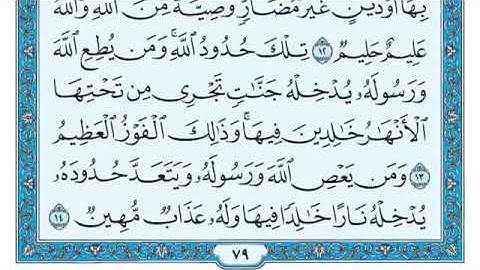 بِهَآ أَوْ دَيْنٍ غَيْرَ مُضَآرٍّ وَصِيَّةً مِّنَ ٱللَّهِ وَٱللَّهُ
عَلِيمٌ حَلِيمٌ ١٢ تِلْكَ حُدُودُ ٱللَّهِ وَمَن يُطِعِ ٱللَّهَ
وَرَسُولَهُۥ يُدْخِلْهُ جَنَّٰتٍ تَجْرِى مِن تَحْتِهَا
ٱلْأَنْهَٰرُ خَٰلِدِينَ فِيهَا ۚ وَذَٰلِكَ ٱلْفَوْزُ ٱلْعَظِيمُ
١٣ وَمَن يَعْصِ ٱللَّهَ وَرَسُولَهُۥ وَيَتَعَدَّ حُدُودَهُۥ
يُدْخِلْهُ نَارًا خَٰلِدًا فِيهَا وَلَهُۥ عَذَابٌ مُّهِينٌ ١٤
٧٩